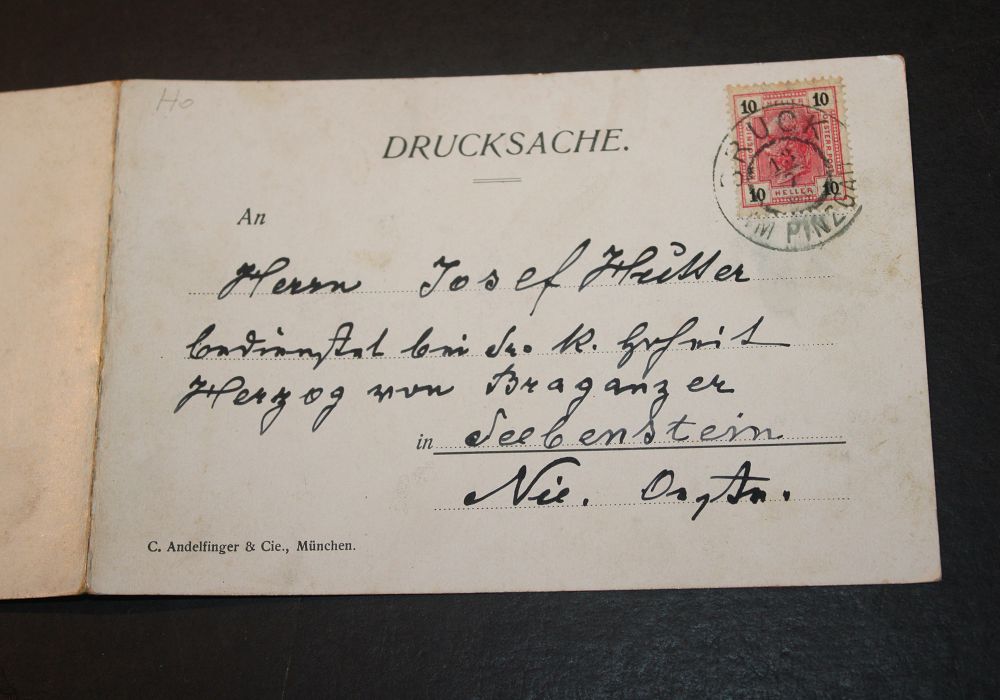 Ho
DRUCKSACHE.
10 HELLER 10
10 HELLER 10
BRUCK
IM PINZGAU
An
Herrn Josef Hutter
bedienstet bei Sr. K. Hoheit
Herzog von Braganzer
in Seebenstein
Nie. Östr.
C. Andelfinger & Cie., München.